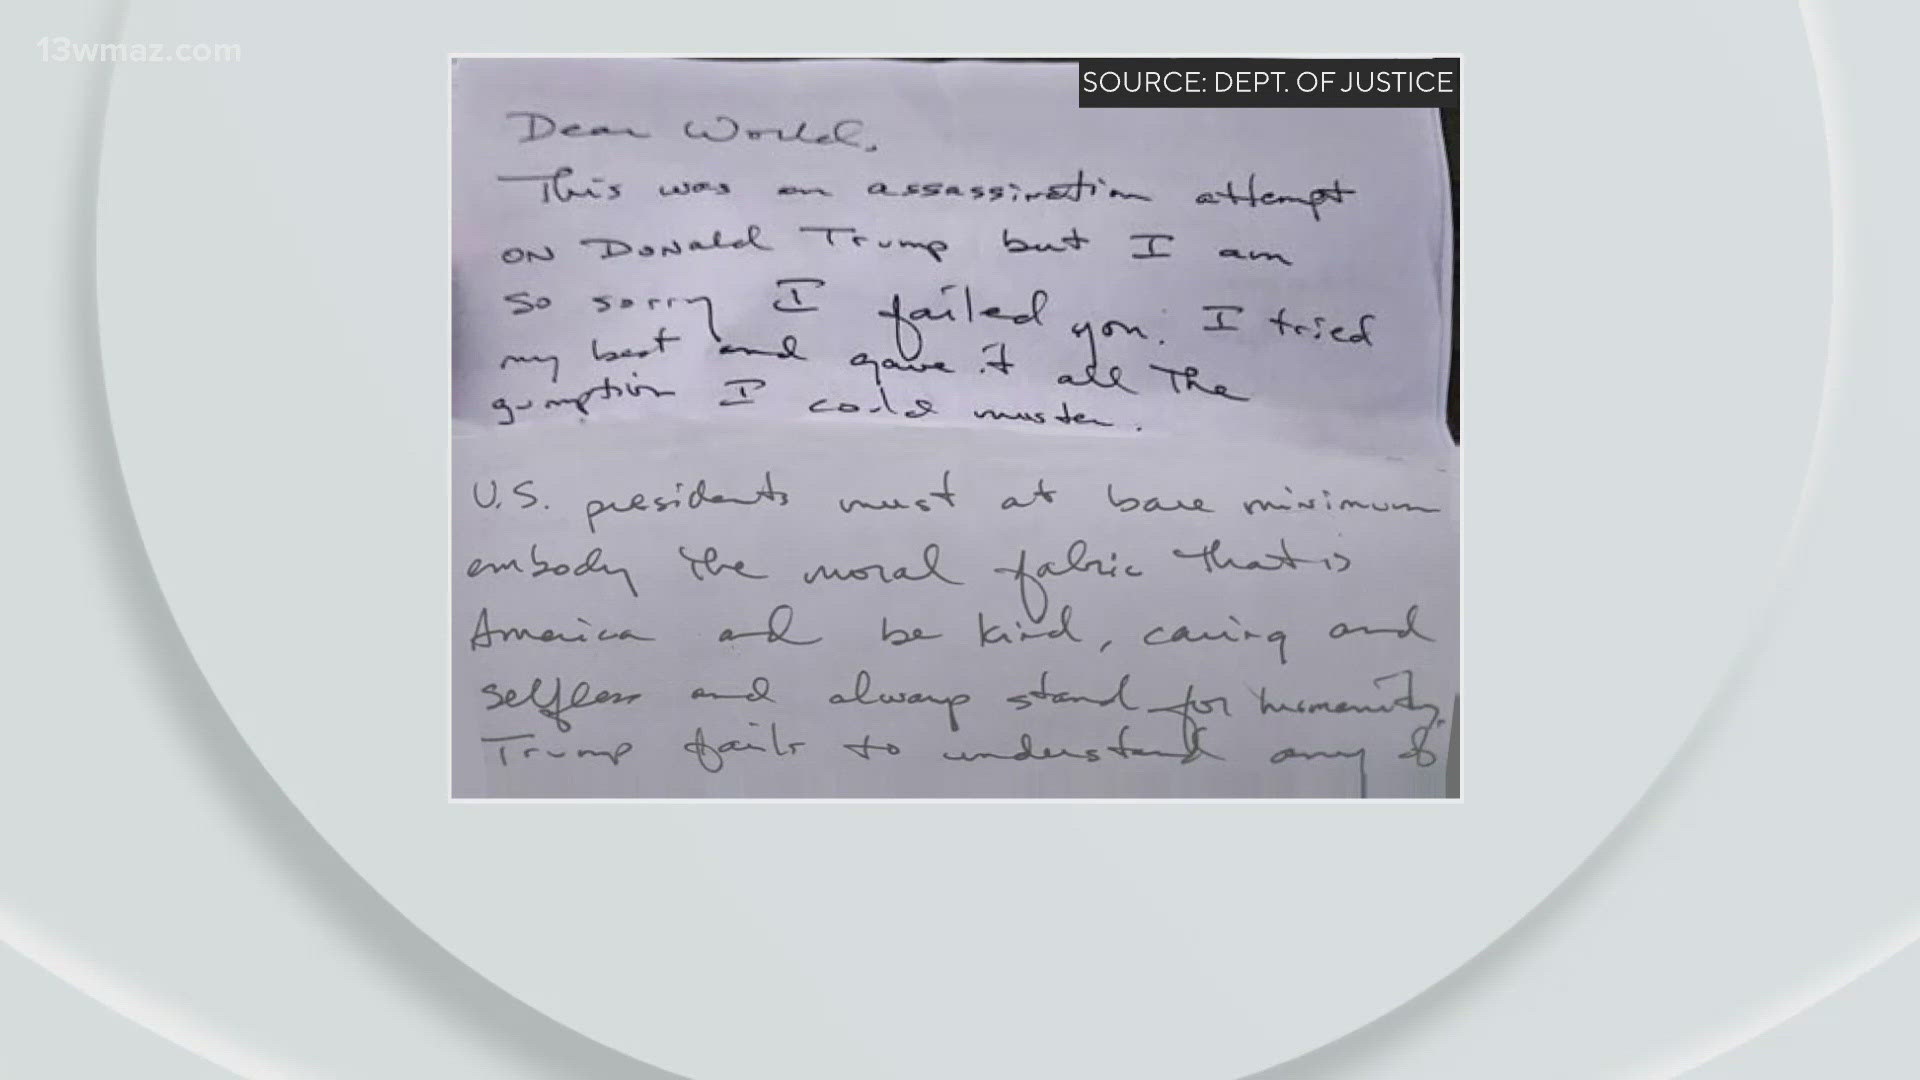 13wmaz.com
SOURCE: DEPT. OF JUSTICE
Dear World,
This was an assassination attempt
on Donald Trump but I am
so sorry I failed you. I tried
my best and gave it all the
gumption I could muster.
U.S. presidents must at bare minimum
embody the moral fabric that is
America and be kind, caring and
selfless and always stand for humanity.
Trump fails to understand any of